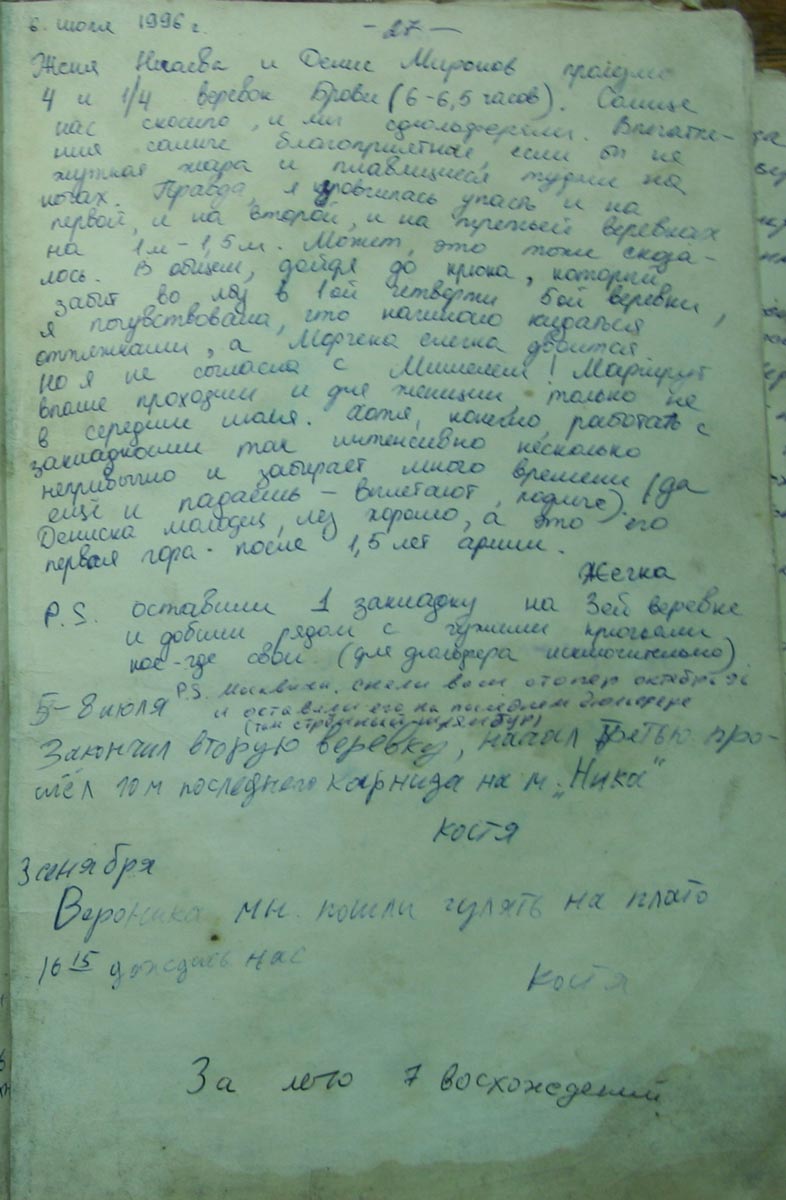 6 июля 1996 г. - 27 -
Женя Нечаева и Денис Миронов пройдено
4 и 1/4 веревок Брови (6-6,5 часов). Солнце
нас скосило, и мы сдюльферяли. Впечатле-
ния самые благоприятные, если бы не
жуткая жара и плавящиеся туфли на
ногах. Правда, я умудрилась упасть и на
первой, и на второй, и на третьей веревках
на 1м-1,5м. Может, это тоже сказа-
лось. В общем, дойдя до крюка, который
забит во лбу в 1ой четверти 5ой веревки,
я почувствовала, что начинаю кидаться
оттяжками, а Моргена слегка двоится
Но я не согласна с Мишелем! Маршрут
вполне проходим и для женщин, только не
в середине июля. Хотя, конечно, работать с
закладками так интенсивно несколько
непривычно и забирает много времени (да
ещё и падаешь - вылетают, подлые).
Дениска молодец, лез хорошо, а это его
первая гора после 1,5 лет армии.
Жечка
P.S. оставили 1 закладку на 3ей веревке
и добили рядом с чужими крючьями
кое-где свои. (для дюльфера исключительно)
P.S. сняли ваш стопор октября
и оставили его на последнем дюльфере
5-8 июля
Закончил вторую веревку, начал третью про-
шёл 10м последнего карниза на м. "Ника"
Костя
3 сенября
Вероника мы пошли гулять на плато
16 15 дождись нас
Костя
За лето 7 восхождений